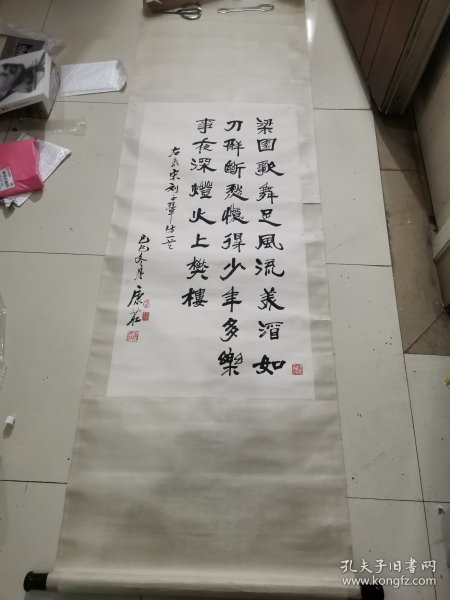 梁園歌舞足風流美酒如
刀解斷愁憶得少年多樂
事夜深燈火上樊樓
右录宋刘子翬诗一首
己巳冬月康莊
孔夫子旧书网
www.kongfz.com